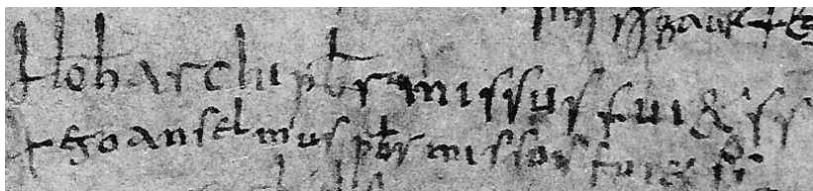 + Ioh archi pbr missus fui & ss
+ ego anselmus pbr missos fui